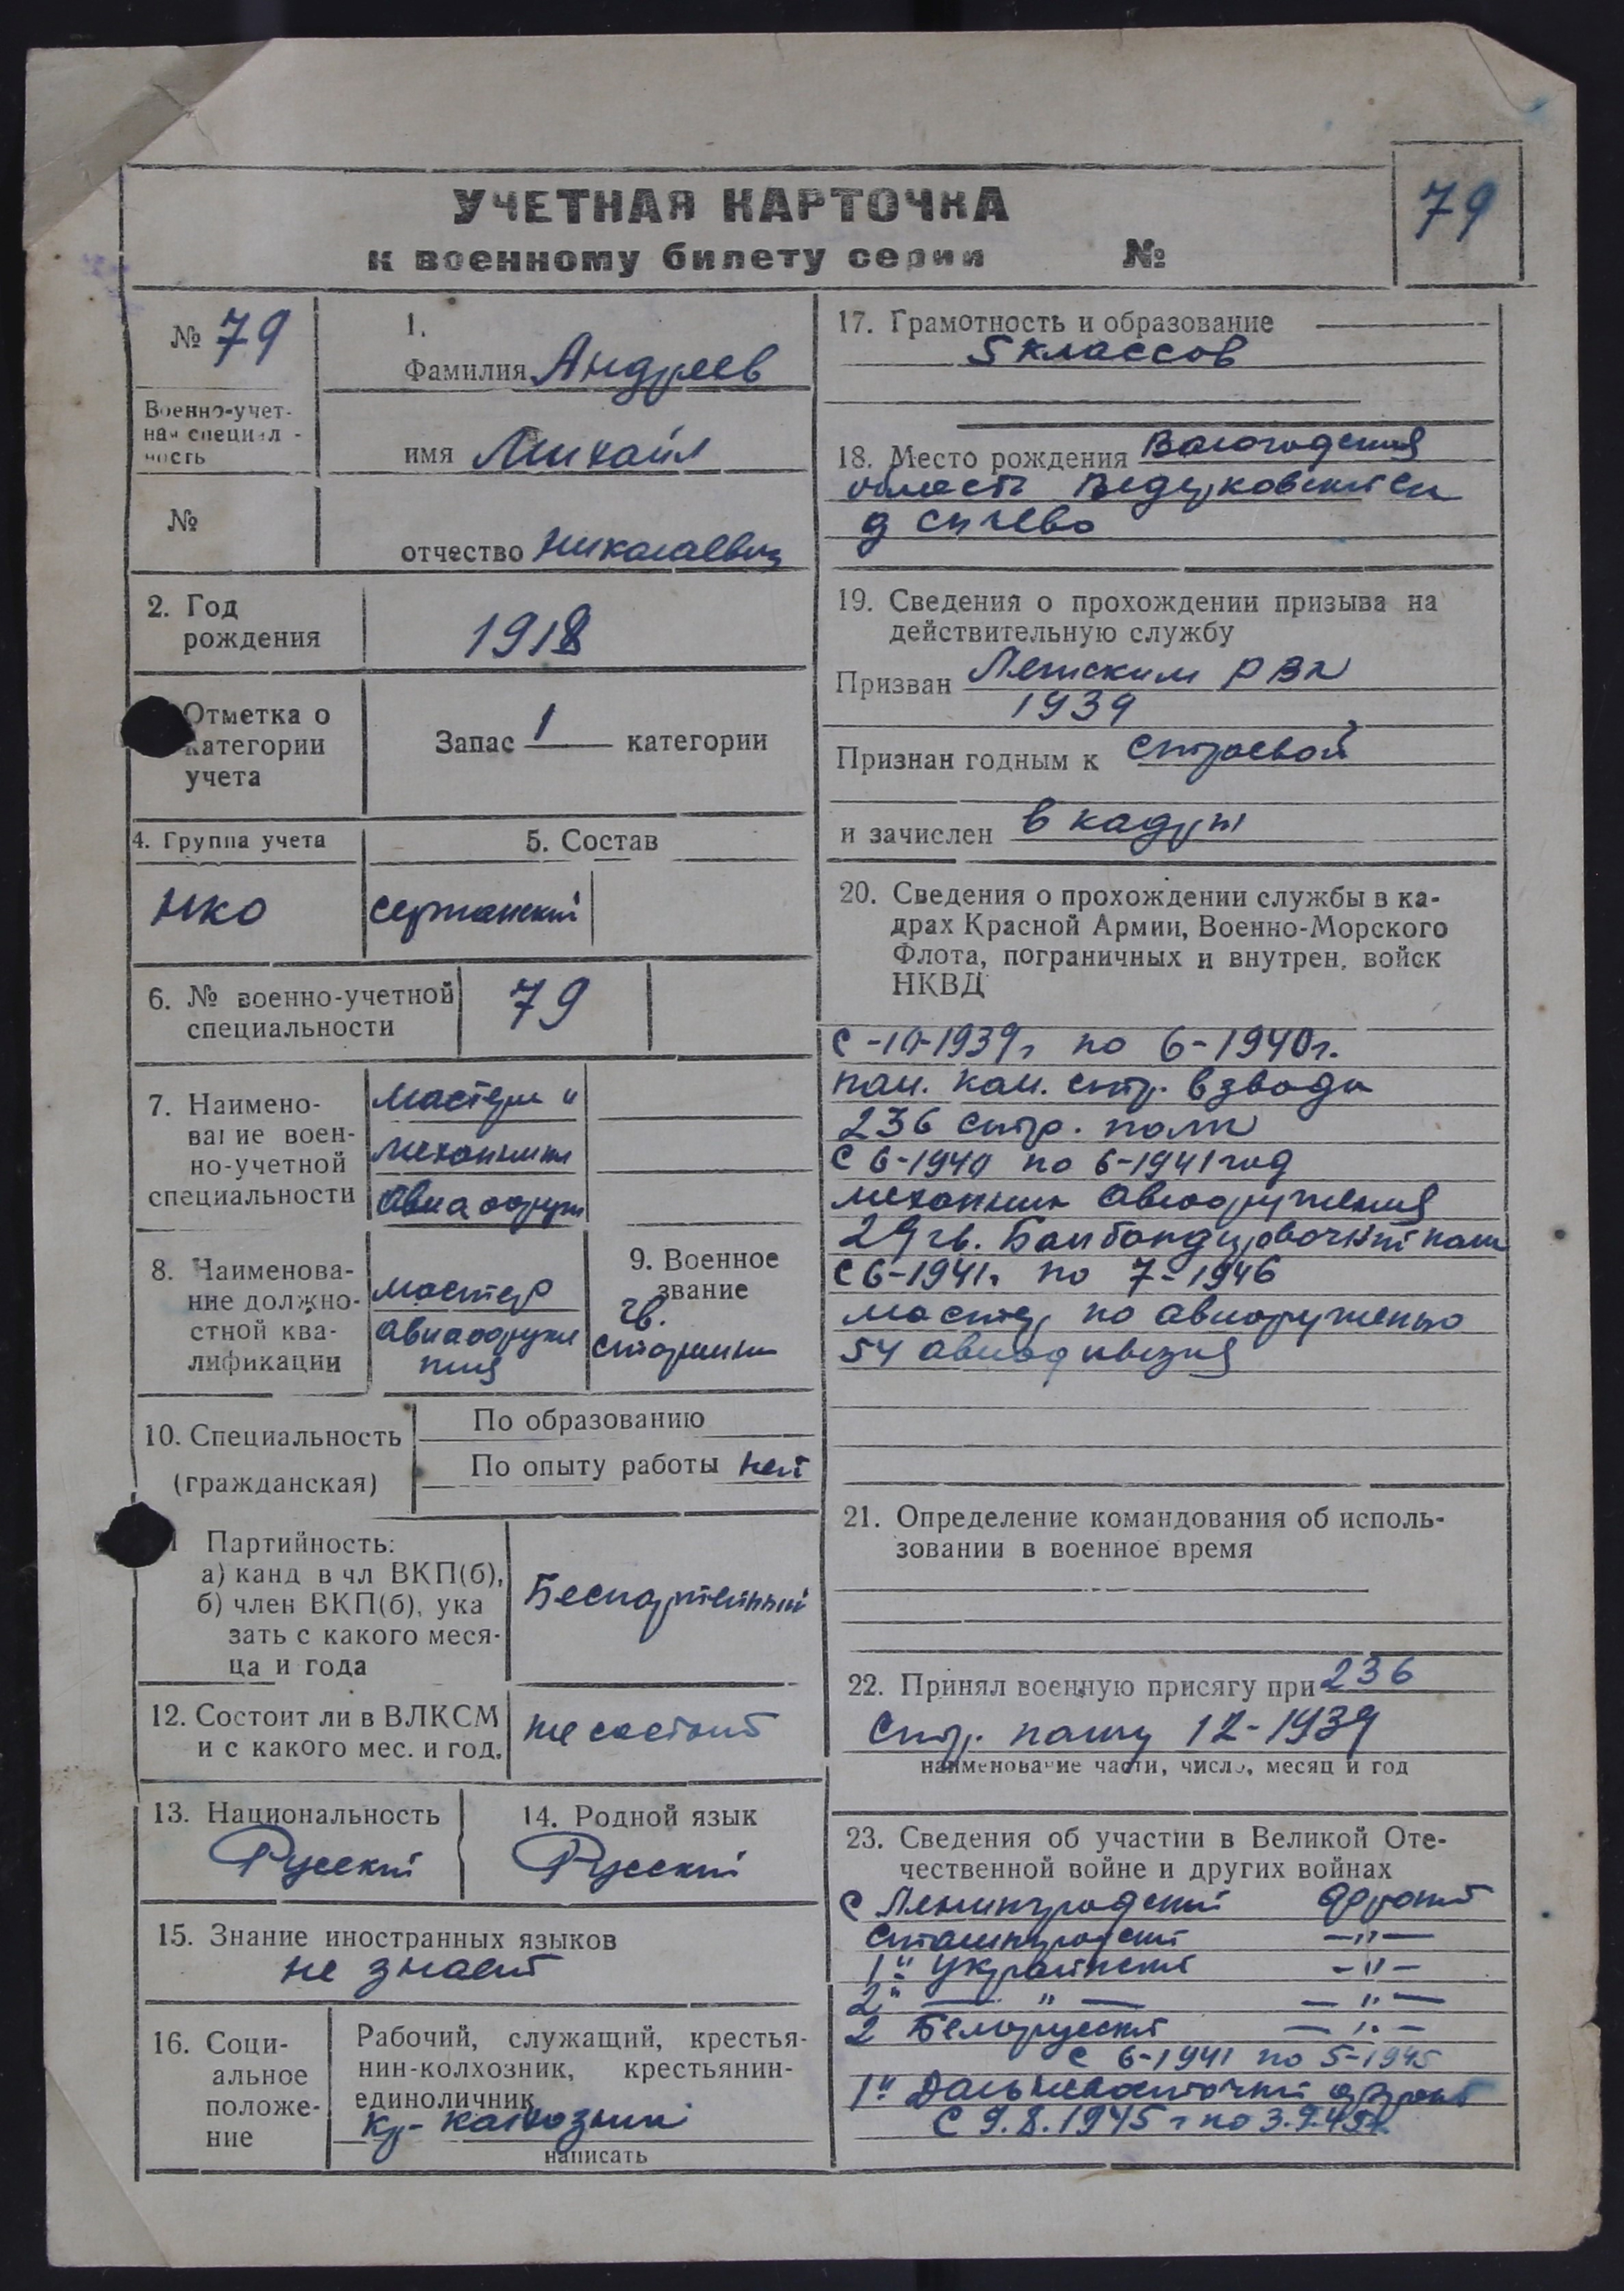 УЧЕТНАЯ КАРТОЧКА
к военному билету серии №
79
№ 79
Военно-учет-
ная специал-
ность
№
1.
Фамилия Андреев
имя Михаил
отчество Николаевич
2. Год
рождения
1918
Отметка о
категории
учета
Запас 1 категории
4. Группа учета
НКО
5. Состав
сержанский
6. № военно-учетной
специальности
79
7. Наимено-
вание воен-
но-учетной
специальности
мастера и
механики
авиаоруж
8. Наименова-
ние должно-
стной ква-
лификации
мастер
9. Военное
звание
гв.
старшина
10. Специальность
(гражданская)
По образованию
По опыту работы нет
Партийность:
а) канд в чл ВКП(б),
б) член ВКП(б), ука
зать с какого меся-
ца и года
Беспартейный
12. Состоит ли в ВЛКСМ
и с какого мес. и год.
не состоит
13. Национальность
Русский
14. Родной язык
Русский
15. Знание иностранных языков
не знает
16. Соци-
альное
положе-
ние
Рабочий, служащий, крестья-
нин-колхозник, крестьянин-
единоличник
кр-колхозник
написать
17. Грамотность и образование
5 классов
18. Место рождения Вологодская
область
д
19. Сведения о прохождении призыва на
действительную службу
Призван РВК
1939
Признан годным к строевой
и зачислен в кадры
20. Сведения о прохождении службы в ка-
драх Красной Армии, Военно-Морского
Флота, пограничных и внутрен. войск
НКВД
С -10-1939г по 6-1940г.
пом. ком. стр. взвода
236 стр. полк
С 6-1940 по 6-1941 год
механик авиооружения
29 гв. Бомбандировочный полк
С 6-1941г по 7-1946
мастер по авиоруженью
54 авиодивизия
21. Определение командования об исполь-
зовании в военное время
22. Принял военную присягу при 236
Стр. полку 12-1939
наименование части, число, месяц и год
23. Сведения об участии в Великой Оте-
чественной войне и других войнах
С Ленинградский фронт
Сталинградский —"—
1й Украинский —"—
2й — " — —"—
2 Белорусский —"—
С 6-1941 по 5-1945
1й Дальневосточный фронт
С 9.8.1945 г по 3.9.45г.